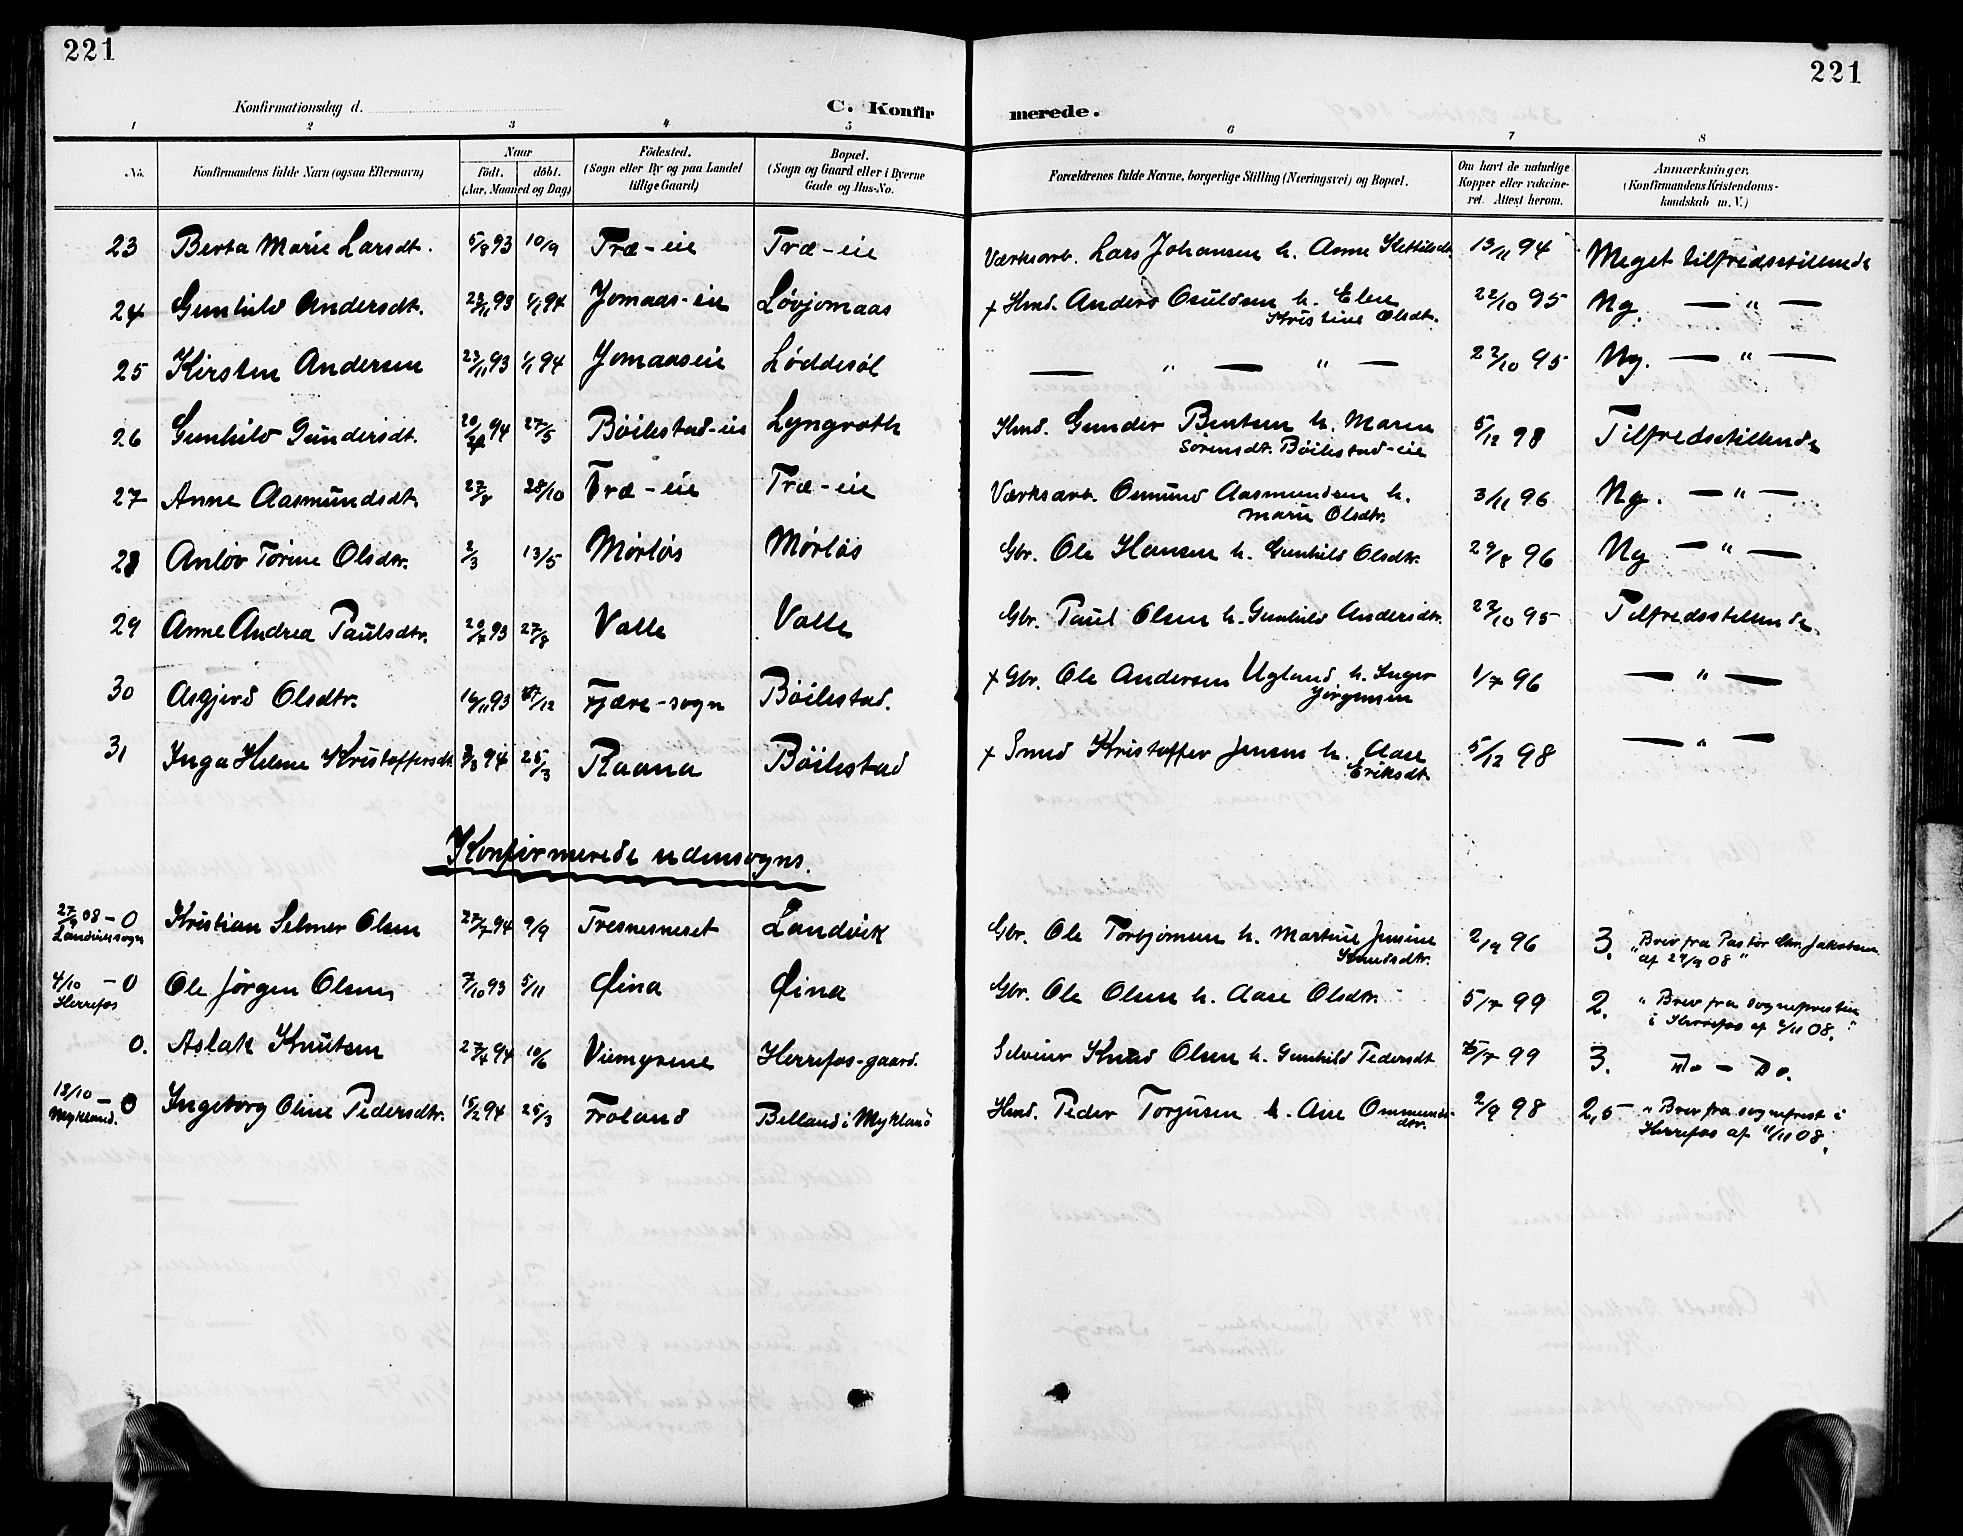 221
221
Konfirmationsdag d.
C. Konfir
merede.
1 2 3 4 5 6 7 8
No.
Konfirmandens fulde Navn (ogsaa Efternavn)
Naar
født. døbt.
(Aar, Maaned og Dag)
Fødested.
(Sogn eller By og paa Landet
tillige Gaard)
Bopæl.
(Sogn og Gaard eller i Byerne
Gade og Hus-No.
Forældrenes fulde Navne, borgerlige Stilling (Næringsvei) og Bopæl.
Om havt de naturlige
Kopper eller vakcine-
ret. Attest herom.
Anmærkninger.
(Konfirmandens Kristendoms-
kundskab m. V.)
23 Berta Marie Larsdt. 5/8 93 10/9 Træ-eie Træ-eie Værksarb. Lars Johansen h. Anne Kettilsdt. 13/11 94 Meget tilfredsstillende
24 Gunhild Andersdt. 23/11 93 1/1 94 Jomaas-eie Løvjomaas + Hmd. Anders Osuldsen h. Elen
Kristine Olsdt. 22/10 95 Ng. — " —
25 Kirsten Andersen 23/11 93 1/1 94 Jomaaseie Løddesøl — " — " — 22/10 95 Ng. — " —
26 Gunhild Gundersdt. 20/4 94 27/5 Bøilestad-eie Lyngroth Hmd. Gunder Bentsen h. Maren
Sørensdt. Bøilestad-eie 5/12 98 Tilfredsstillende
27 Anne Aasmundsdt. 27/8 28/10 Træ-eie Træ-eie Værksarb. Osmund Aasmundsen h.
Marie Olsdtr. 3/11 96 Ng. — " —
28 Anlov Torine Olsdtr. 2/3 13/5 Mørløs Mørløs Gbr. Ole Hansen h. Gunhild Olsdtr. 29/8 96 Ng — " —
29 Anne Andrea Paulsdtr. 20/7 93 27/8 Valle Valle Gbr. Paul Olsen h. Gunhild Andersdtr. 22/10 95 Tilfredsstillende
30 Asgjerd Olsdtr. 16/11 93 17/12 Fjære-sogn Bøilestad. + Gbr. Ole Andersen Ugland h. Inger
Jørgensen 1/7 96 — " —
31 Inga Helene Kristoffersdt. 7/3 94 25/3 Raana Bøilestad + Smed Kristoffer Jensen h. Aase
Eriksdt. 5/12 98 — " —
Konfirmerede udensogns.
27/9 08 – 0 Kristian Selmer Olsen 27/7 94 9/9 Tresnesneset Landvik Gbr. Ole Torbjørnsen h. Martine Jensine
Landviksogn Knudsdtr. 2/9 96 3. "Brev fra Pastor Chr. Jakobsen
af 29/9 08"
4/10 – 0 Ole Jørgen Olsen 7/10 93 5/11 Øina Øina Gbr. Ole Olsen h. Aase Olsdtr. 5/7 99 2. " Brev fra sognepresten
Herrefos i Herrefos af 11/11 08."
0. Aslak Knutsen 27/4 94 10/6 Viemyrene Herrefos-gaard. Selveier Knud Olsen h. Gunhild Pedersdt 5/7 99 3. Do – Do.
18/10 – 0 Ingeborg Oline Pedersdtr. 15/2 94 25/3 Froland Belland i Mykland Hmd. Peder Torjusen h. Ane Ommunds-
Mykland. dtr. 2/9 98 2,5 " Brev fra sogneprest i
Herrefos af 11/11 08.